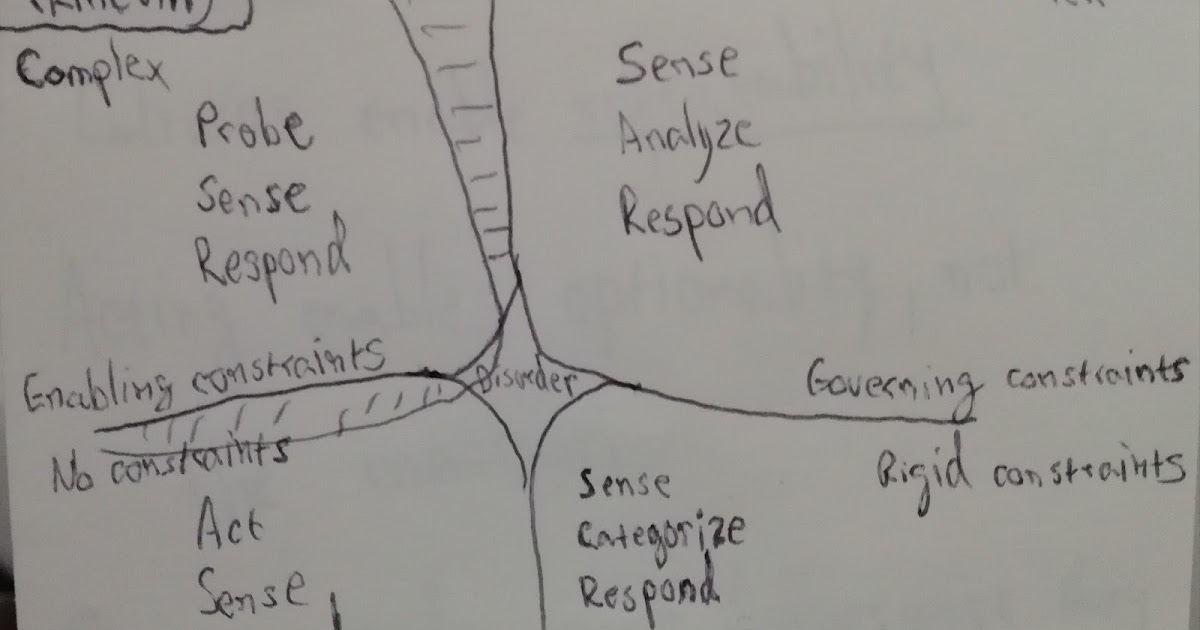 Complex
Probe
Sense
Respond
Enabling constraints
Sense
Analyze
Respond
Disorder
Governing constraints
No constraints
Act
Sense
Rigid constraints
Sense
Categorize
Respond